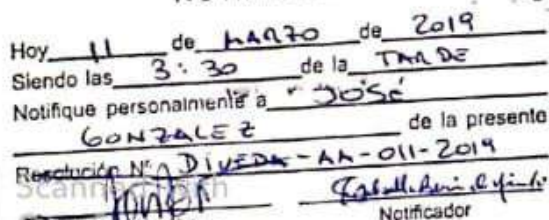 Hoy 11 de MARZO de 2019
Siendo las 3:30 de la TARDE
Notifique personalmente a JOSÉ
GONZALEZ de la presente
Resolución N° DIVEDA-AA-011-2019
Scanned with
Notificador